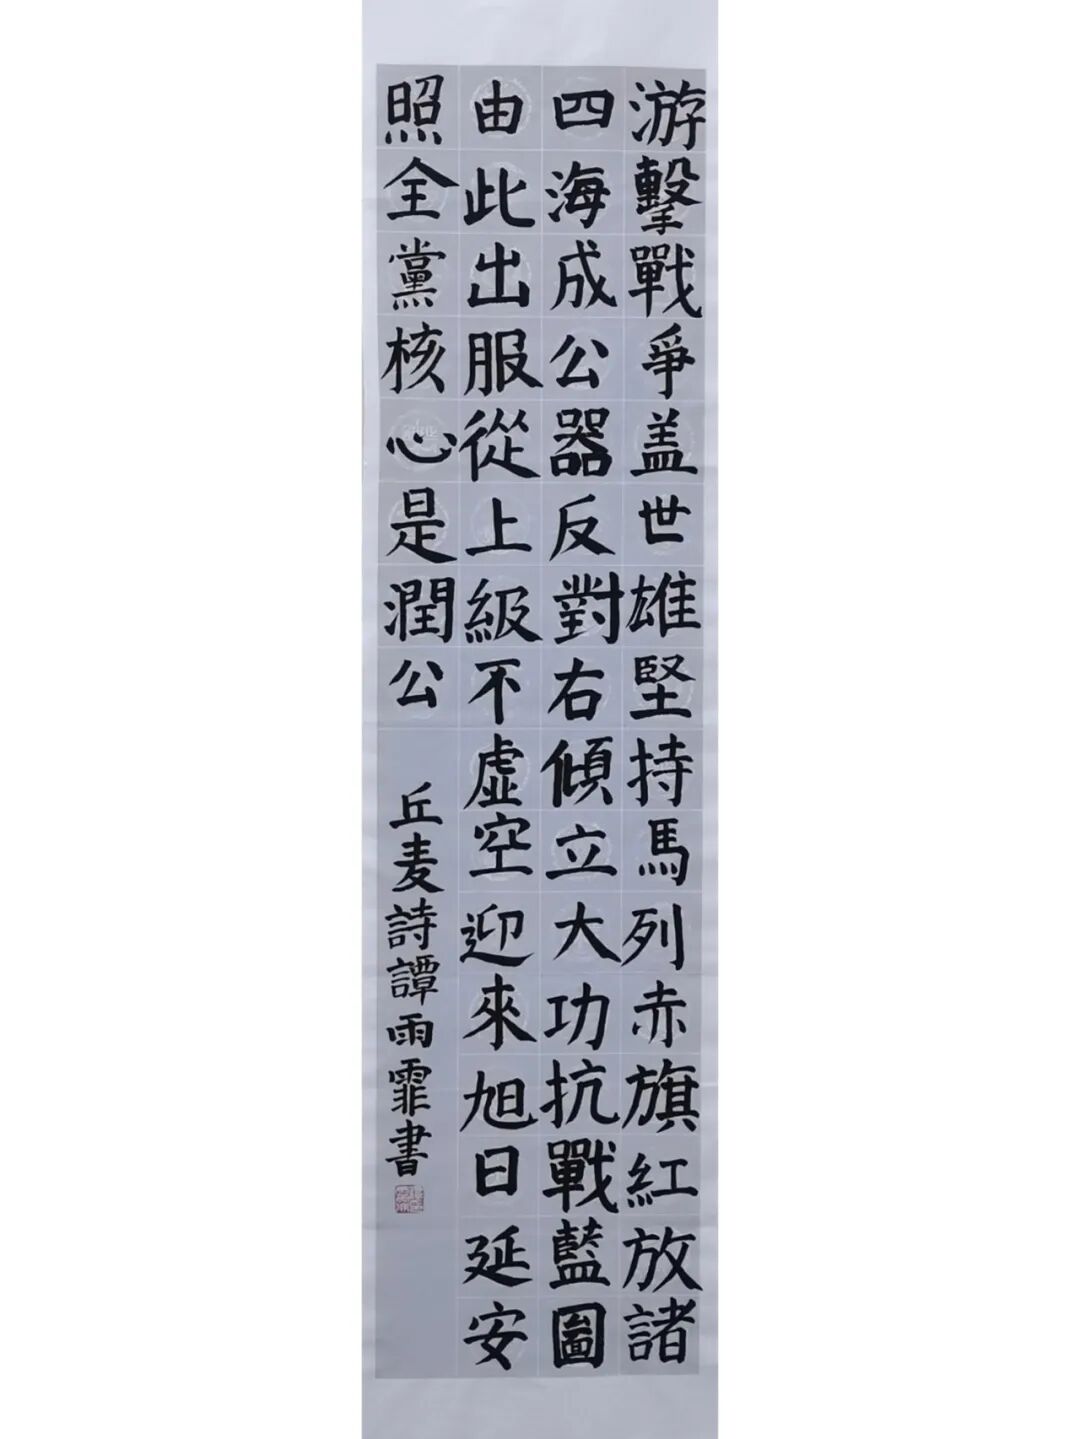 游擊戰爭盖世雄堅持馬列赤旗紅放諸
四海成公器反對右傾立大功抗戰藍圖
由此出服從上級不虚空迎來旭日延安
照全黨核心是潤公
丘麦詩譚雨霏書